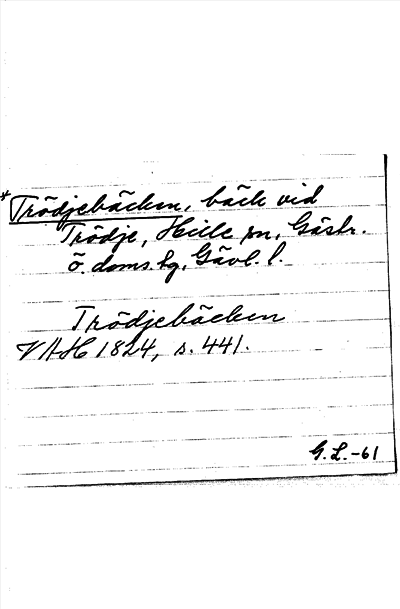 * Trödjebäcken, bäck vid
Trödje, Hille sn, Gästr.
ö. doms. hg, Gävl. l.
Trödjebäcken
VAH 1824, s. 441.
G.L.-61